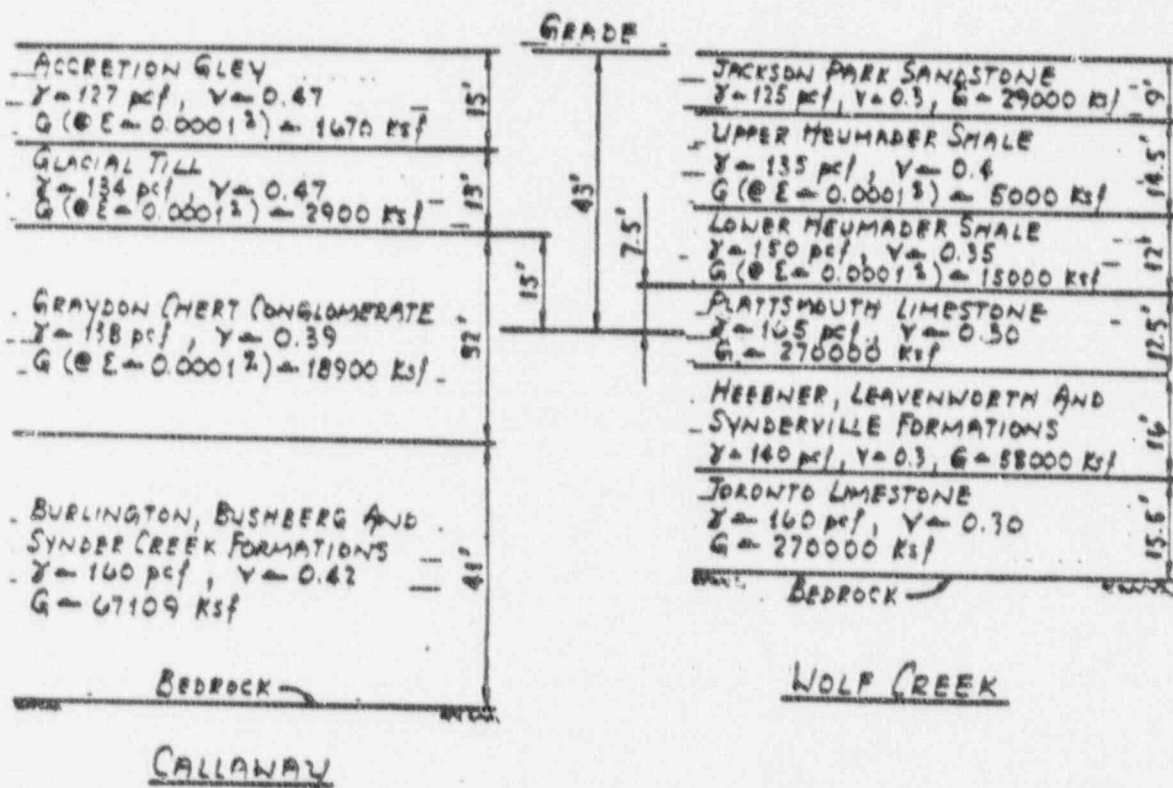 GRADE
ACCRETION GLEY
γ ≈ 127 pcf, ν ≈ 0.47
G (@ ε ≈ 0.0001%) ≈ 1670 Ksf
15'
GLACIAL TILL
γ ≈ 134 pcf, ν ≈ 0.47
G (@ ε ≈ 0.0001%) ≈ 2900 Ksf
13'
GRAYDON CHERT CONGLOMERATE
γ ≈ 138 pcf, ν ≈ 0.39
G (@ ε ≈ 0.0001%) ≈ 18900 Ksf
32'
BURLINGTON, BUSHBERG AND
SYNDER CREEK FORMATIONS
γ ≈ 160 pcf, ν ≈ 0.42
G ≈ 67109 Ksf
41'
BEDROCK
CALLAWAY
15'
43'
7.5'
JACKSON PARK SANDSTONE
γ ≈ 125 pcf, ν ≈ 0.3, G ≈ 29000 Ksf
9'
UPPER HEUMADER SHALE
γ ≈ 135 pcf, ν ≈ 0.4
G (@ ε ≈ 0.0001%) ≈ 5000 Ksf
14.5'
LOWER HEUMADER SHALE
γ ≈ 150 pcf, ν ≈ 0.35
G (@ ε ≈ 0.0001%) ≈ 15000 Ksf
12'
PLATTSMOUTH LIMESTONE
γ ≈ 165 pcf, ν ≈ 0.30
G ≈ 270000 Ksf
12.5'
HEEBNER, LEAVENWORTH AND
SYNDERVILLE FORMATIONS
γ ≈ 140 pcf, ν ≈ 0.3, G ≈ 58000 Ksf
16'
TORONTO LIMESTONE
γ ≈ 160 pcf, ν ≈ 0.30
G ≈ 270000 Ksf
BEDROCK
WOLF CREEK